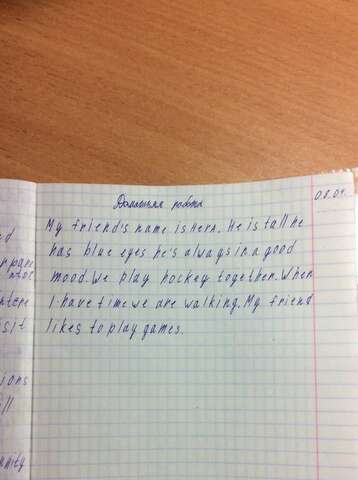 Домашняя работа
08.04.
My friend's name is Hern. He is tall he
has blue eyes he's always in a good
mood. We play hockey together. When
I have time we are walking. My friend
likes to play games.
sit
ions
ll